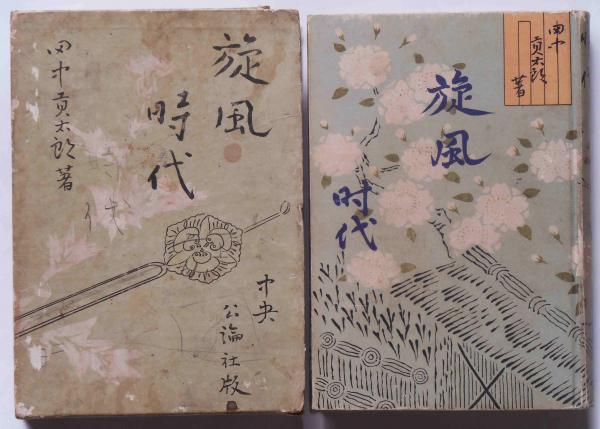 旋風
時代
田中貢太郎著
中央
公論社版
田中
貢太郎
著
旋風
时代